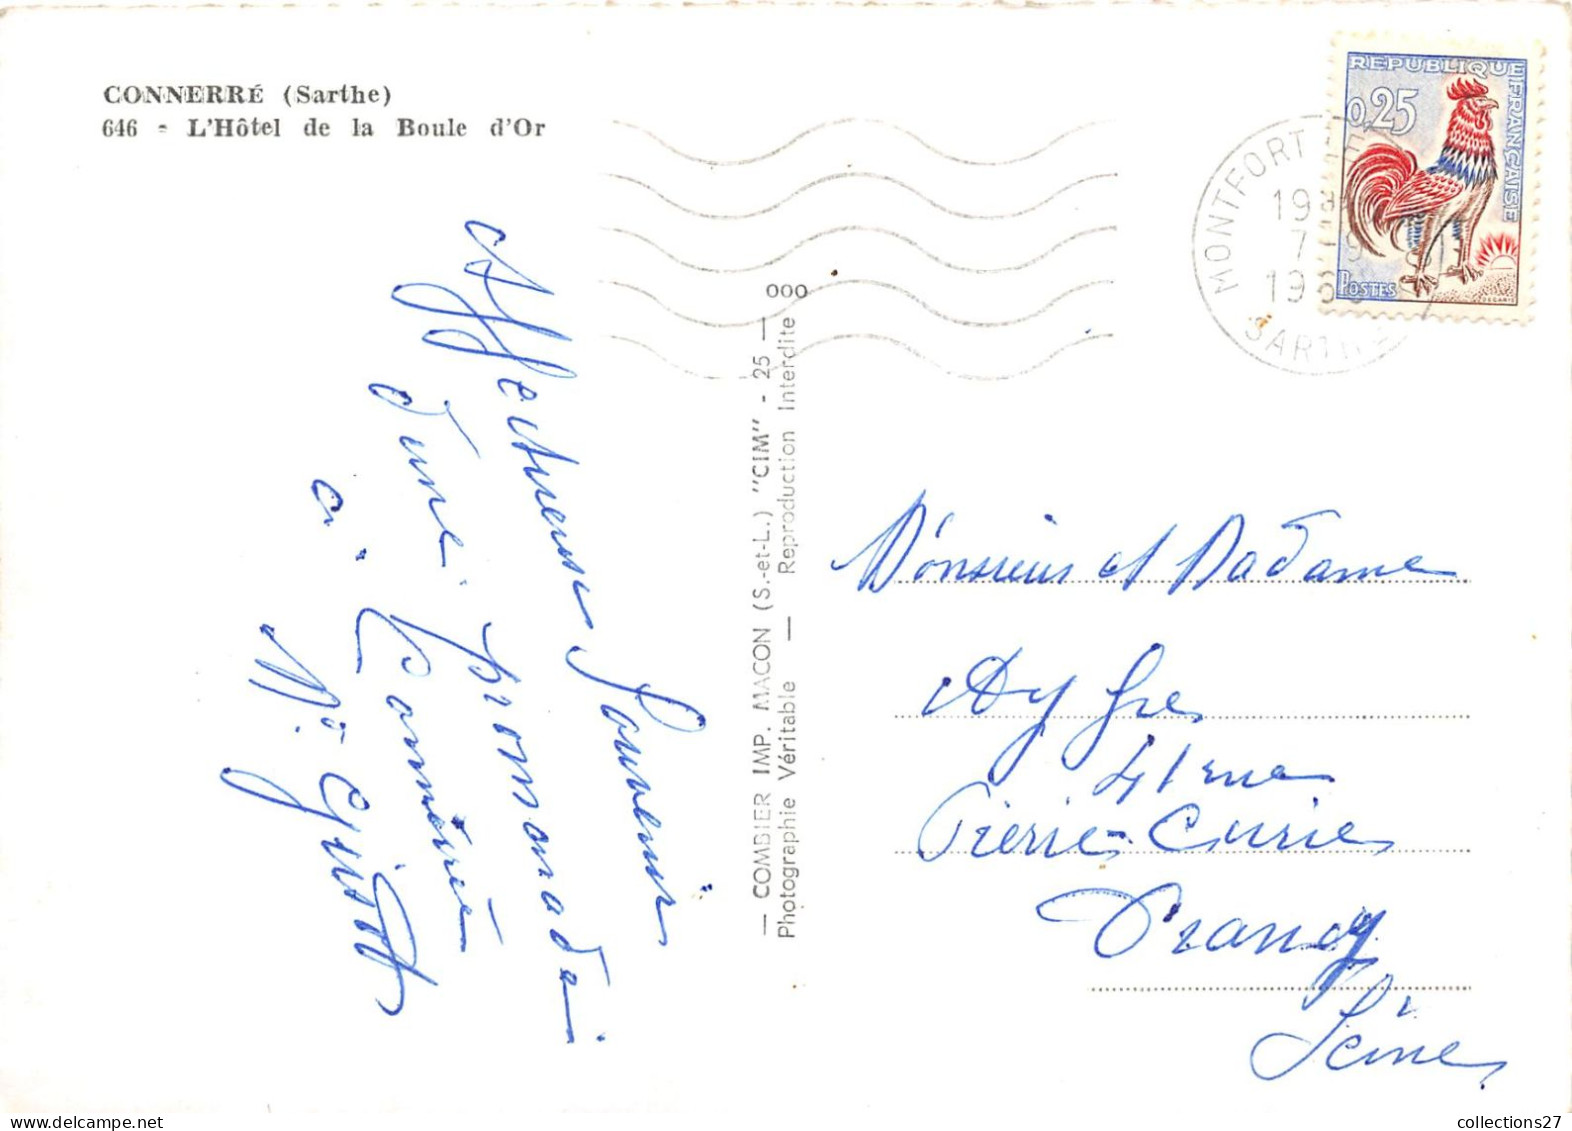 CONNERRÉ (Sarthe)
646 - L'Hôtel de la Boule d'Or
REPUBLIQUE FRANÇAISE
0,25
POSTES
DECARIS
MONTFORT
SARTHE
7 - 9
Affectueux Souvenir
d'une promenade
à Connerré
COMBIER IMP. MACON (S.-et-L.) "CIM" - 25 —
Photographie Véritable — Reproduction Interdite
ooo
Monsieur et Madame
41 rue
Pierre Curie
Drancy
Seine
collections27